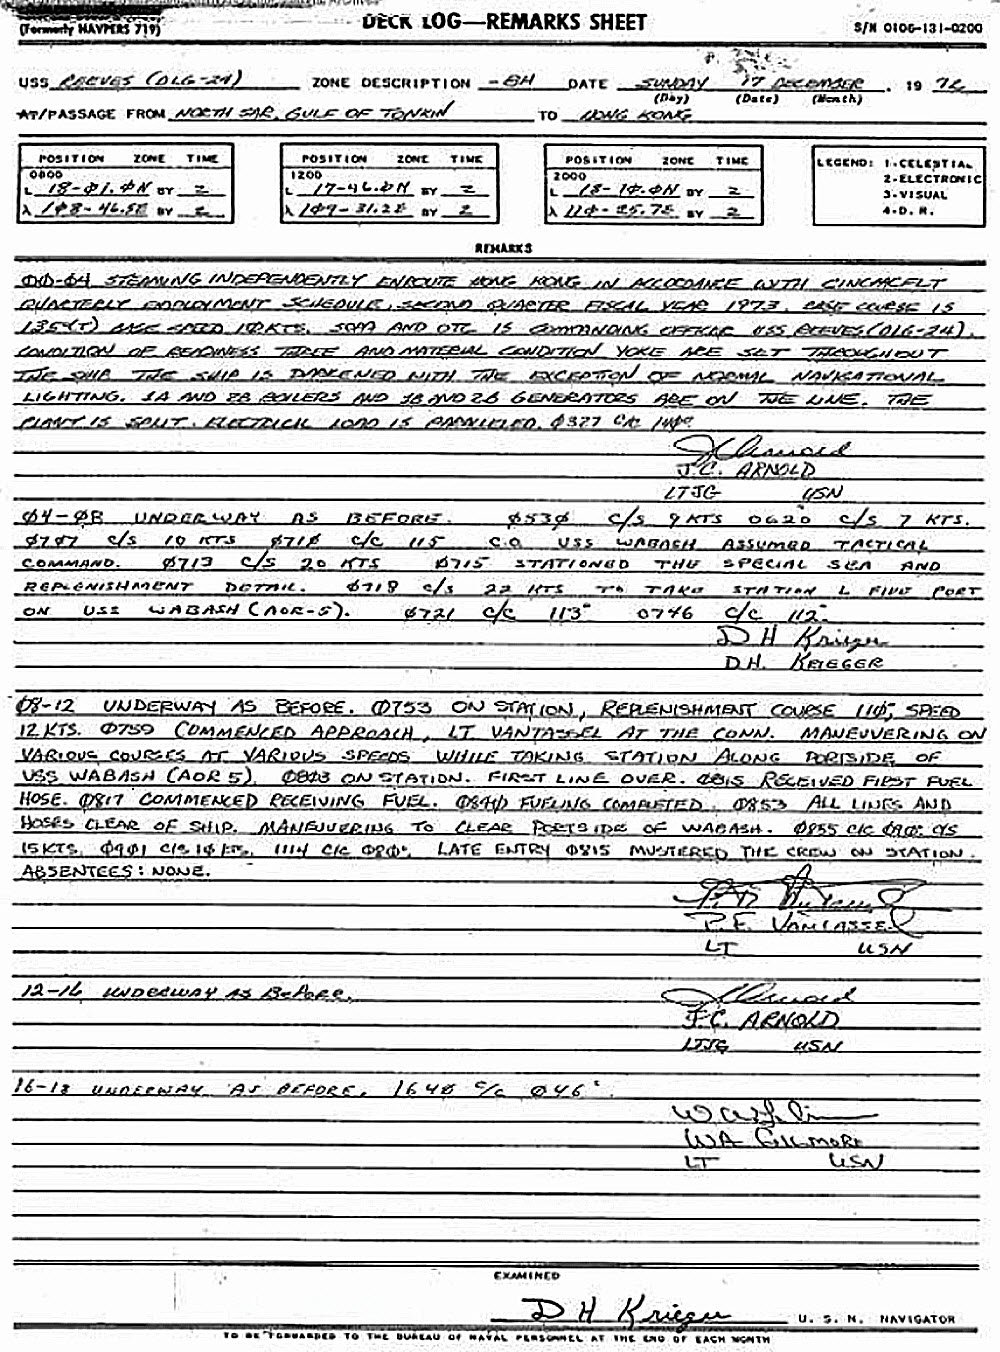 (Formerly NAVPERS 719)
DECK LOG—REMARKS SHEET
S/N 0106-131-0200
USS REEVES (DLG-24) ZONE DESCRIPTION -8H DATE SUNDAY 17 DECEMBER, 19 72
(Day) (Date) (Month)
AT/PASSAGE FROM NORTH SAR, GULF OF TONKIN TO HONG KONG
POSITION ZONE TIME
0800
L 18-Ø1.ØN BY 2
λ 1Ø8-46.5E BY 2
POSITION ZONE TIME
1200
L 17-46.ØN BY 2
λ 1Ø9-31.2E BY 2
POSITION ZONE TIME
2000
L 18-1Ø.ØN BY 2
λ 11Ø-25.7E BY 2
LEGEND: 1-CELESTIAL
2-ELECTRONIC
3-VISUAL
4-D. R.
REMARKS
ØØ-Ø4 STEAMING INDEPENDENTLY ENROUTE HONG KONG IN ACCORDANCE WITH CINCPACFLT
QUARTERLY EMPLOYMENT SCHEDULE, SECOND QUARTER FISCAL YEAR 1973. BASE COURSE IS
135°(T) BASE SPEED 1Ø KTS. SOPA AND OTC IS COMMANDING OFFICER USS REEVES (DLG-24).
CONDITION OF READINESS THREE AND MATERIAL CONDITION YOKE ARE SET THROUGHOUT
THE SHIP THE SHIP IS DARKENED WITH THE EXCEPTION OF NORMAL NAVIGATIONAL
LIGHTING. 1A AND 2B BOILERS AND 1B AND 2B GENERATORS ARE ON THE LINE. THE
PLANT IS SPLIT. ELECTRICAL LOAD IS PARALLELED. Ø327 C/C 140°
J.C. Arnold
J.C. ARNOLD
LTJG USN
Ø4-Ø8 UNDERWAY AS BEFORE. Ø53Ø C/S 9 KTS 0620 C/S 7 KTS.
Ø7Ø7 C/S 10 KTS Ø71Ø C/C 115 C.O. USS WABASH ASSUMED TACTICAL
COMMAND. Ø713 C/S 20 KTS Ø715 STATIONED THE SPECIAL SEA AND
REPLENISHMENT DETAIL. Ø718 C/S 22 KTS TO TAKE STATION L FIVE PORT
ON USS WABASH (AOR-5). Ø721 C/C 113° 0746 C/C 112°
D H Krieger
D.H. KRIEGER
Ø8-12 UNDERWAY AS BEFORE. Ø753 ON STATION, REPLENISHMENT COURSE 110°, SPEED
12 KTS. Ø759 COMMENCED APPROACH, LT VANTASSEL AT THE CONN. MANEUVERING ON
VARIOUS COURSES AT VARIOUS SPEEDS WHILE TAKING STATION ALONG PORTSIDE OF
USS WABASH (AOR 5). Ø8Ø3 ON STATION. FIRST LINE OVER. Ø815 RECEIVED FIRST FUEL
HOSE. Ø817 COMMENCED RECEIVING FUEL. Ø84Ø FUELING COMPLETED. Ø853 ALL LINES AND
HOSES CLEAR OF SHIP. MANEUVERING TO CLEAR PORTSIDE OF WABASH. Ø855 C/C Ø9Ø° C/S
15 KTS. Ø9Ø1 C/S 1Ø KTS. 1114 C/C Ø8Ø°. LATE ENTRY Ø815 MUSTERED THE CREW ON STATION.
ABSENTEES: NONE.
P.E. VANTASSEL
LT USN
12-16 UNDERWAY AS BEFORE.
J.C. Arnold
J.C. ARNOLD
LTJG USN
16-18 UNDERWAY AS BEFORE. 164Ø C/C Ø46°.
WA GILMORE
LT USN
EXAMINED
D H Krieger U. S. N. NAVIGATOR
TO BE FORWARDED TO THE BUREAU OF NAVAL PERSONNEL AT THE END OF EACH MONTH